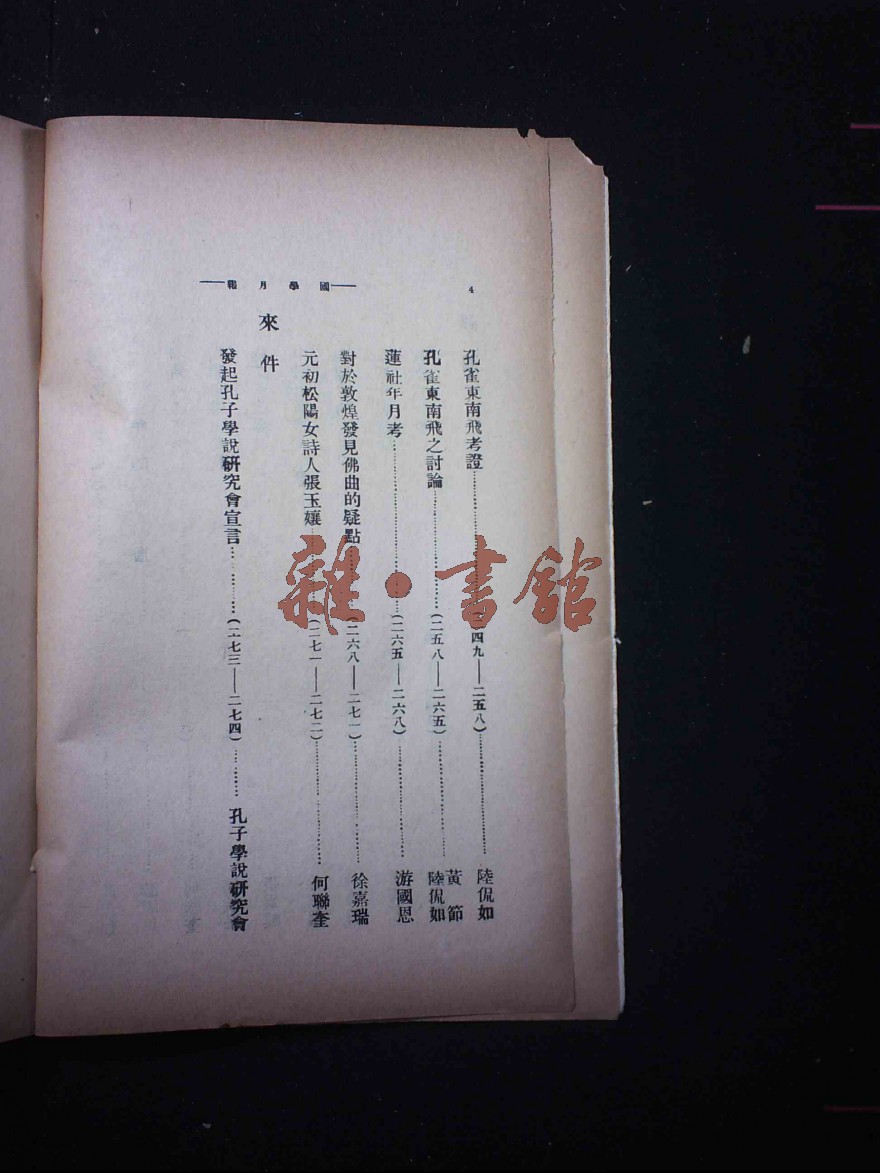 4
——國學月報——
孔雀東南飛考證……(二四九——二五八)……陸侃如
孔雀東南飛之討論……(二五八——二六五)……黃節 陸侃如
蓮社年月考……(二六五——二六八)……游國恩
對於敦煌發見佛曲的疑點……(二六八——二七一)……徐嘉瑞
元初松陽女詩人張玉孃……(二七一——二七二)……何聯奎
來件
發起孔子學說研究會宣言……(二七三——二七四)……孔子學說研究會
雜·書館